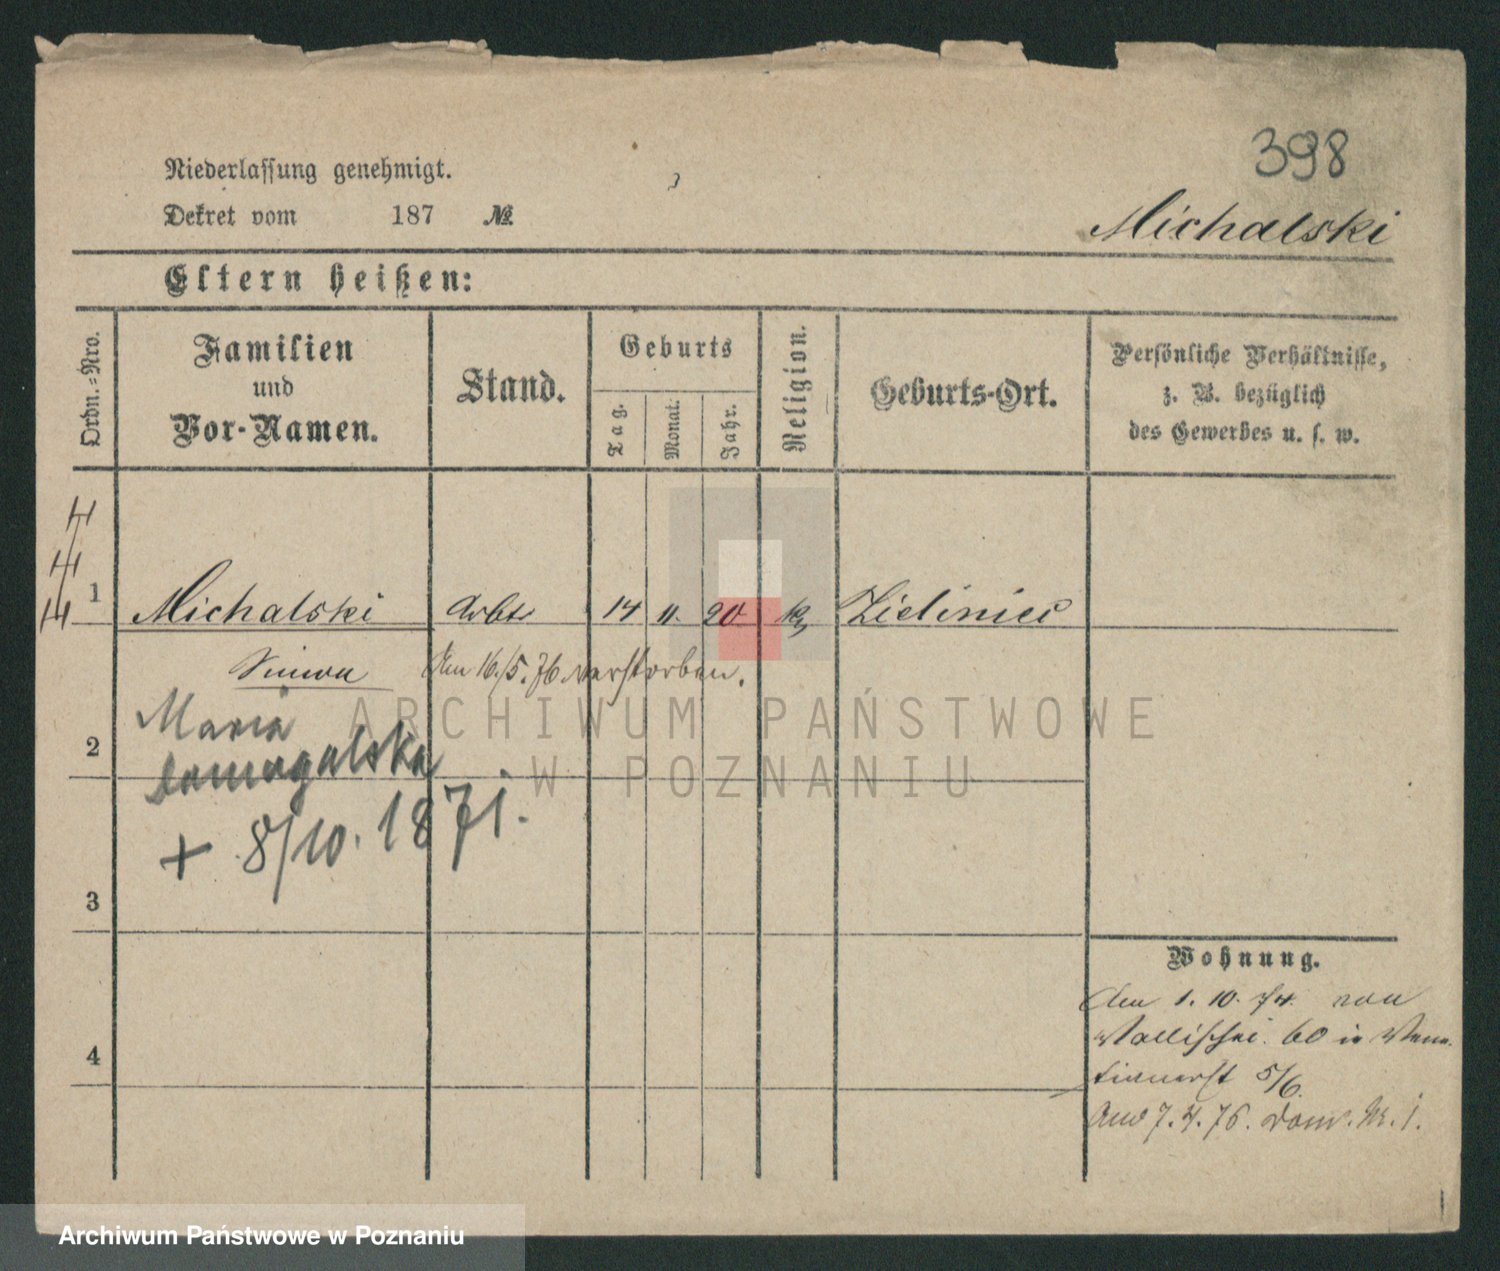 398
Niederlassung genehmigt.
Dekret vom 187 №
Michalski
Eltern heißen:
Ordn.=Nro.
Familien
und
Vor-Namen.
Stand.
Geburts
Tag.
Monat.
Jahr.
Religion.
Geburts-Ort.
Persönliche Verhältnisse,
z. B. bezüglich
des Gewerbes u. s. w.
1 Michalski Arbtr 14 11. 20 Zieliniec
Simon den 16./5. 76 verstorben.
2 Maria
Domagalska
+ 8/10. 1871.
3
4
Wohnung.
den 1. 10. 74. von
Wallischei. 60 in Vene-
tianerst 5/6.
7. 4. 76. Dom. Nr. 1.
ARCHIWUM PAŃSTWOWE
W POZNANIU
Archiwum Państwowe w Poznaniu